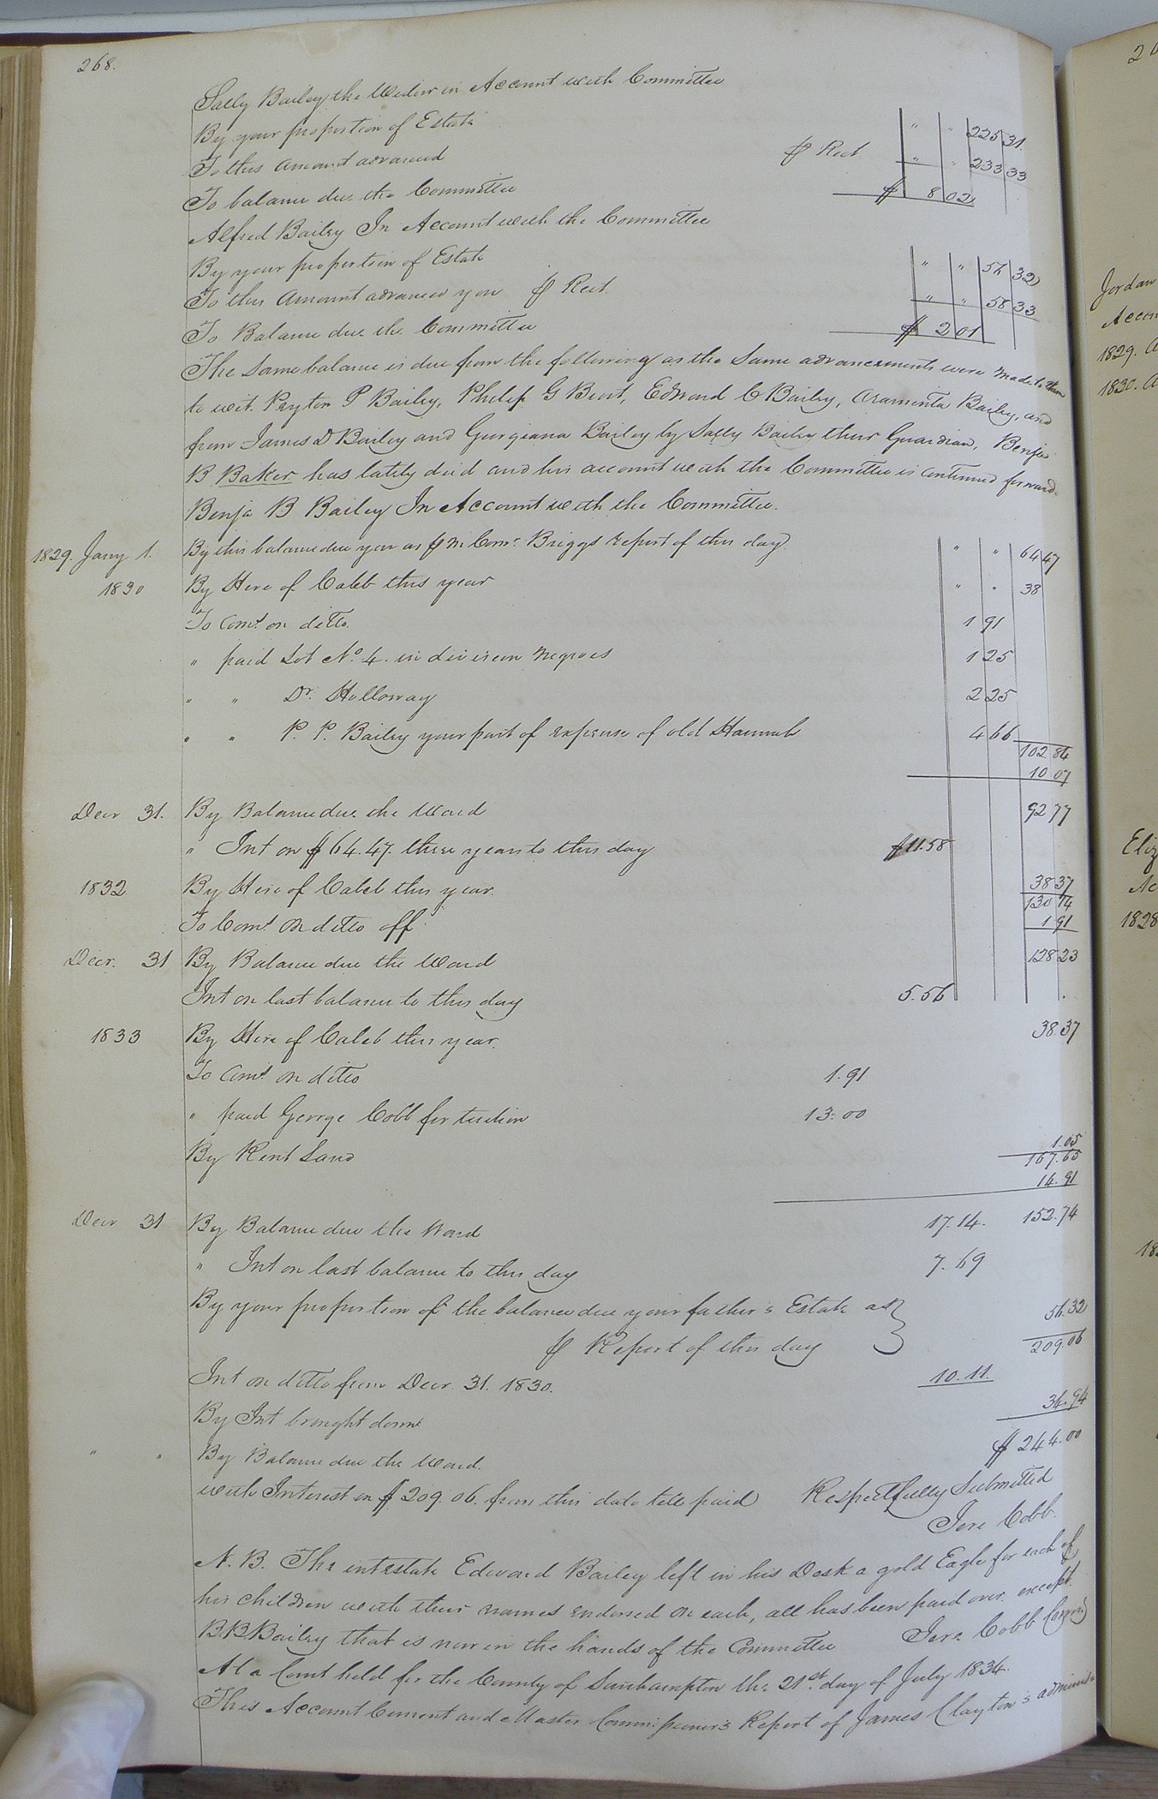 268.
Sally Bailey the Widow in Account with Committee
By your proportion of Estate " " 225 31.
To this amount advanced ⅌ Rect " " 233 33
To balance due the Committee $ 8 02
Alfred Bailey In Account with the Committee
By your proportion of Estate " " 56 32
To this Amount advanced you ⅌ Rect. " " 58 33
To Balance due the Committee $ 2 01
The Same balance is due from the following as the Same advancements were made to them
to wit. Peyton P Bailey, Philip G Bent, Edward C Bailey, Araminta Bailey, and
from James D Bailey and Georgiana Bailey by Sally Bailey their Guardian, Benja
B Baker has lately died and his account with the Committee is continued forward.
Benja B Bailey In Account with the Committee.
1829. Jany 1. By this balance due you as ⅌ M Comr. Briggs Report of this day. " " 64 47
1830 By Hire of Caleb this year " " 38
To Comt. on ditto. 1 91
" paid Lot No. 4. in division Negroes 1 25
" " Dr. Holloway 2 25
" " P. P. Bailey your part of expense of old Hannah 4 66
102 84
10 07
Decr 31. By Balance due the Ward 92 77
" Int on $64.47. three years to this day $11.58
1832 By Hire of Caleb this year. 38 37
130 14
To Comt on ditto off 1 91
Decr. 31 By Balance due the Ward 128 23
Int on last balance to this day 5.56
1833 By Hire of Caleb this year. 38.37
To Comt on ditto 1.91
" paid George Cobb for tuition 13.00
By Rent Land 1.05
167.65
14.91
Decr 31 By Balance due the Ward 17.14. 152.74
" Int on last balance to this day 7.69
By your proportion of the balance due your father's Estate as
⅌ Report of this day 56.32
209.06
Int on ditto from Decr 31. 1830. 10.11.
By Int brought down 34.94
" " By Balance due the Ward. $244.00
with Interest on $209.06. from this date till paid Respectfully Submitted
Jere Cobb.
N.B. The intestate Edward Bailey left in his Desk a gold Eagle for each of
his children with their names endorsed on each, all has been paid over except
B.B.Bailey that is now in the hands of the Committee Jere. Cobb
At a Court held for the County of Southampton the 21st. day of July 1834.
This Account Current and Master Commissioner's Report of James Clayton's
26
Jordan
Accou
1829.
1830.
1828